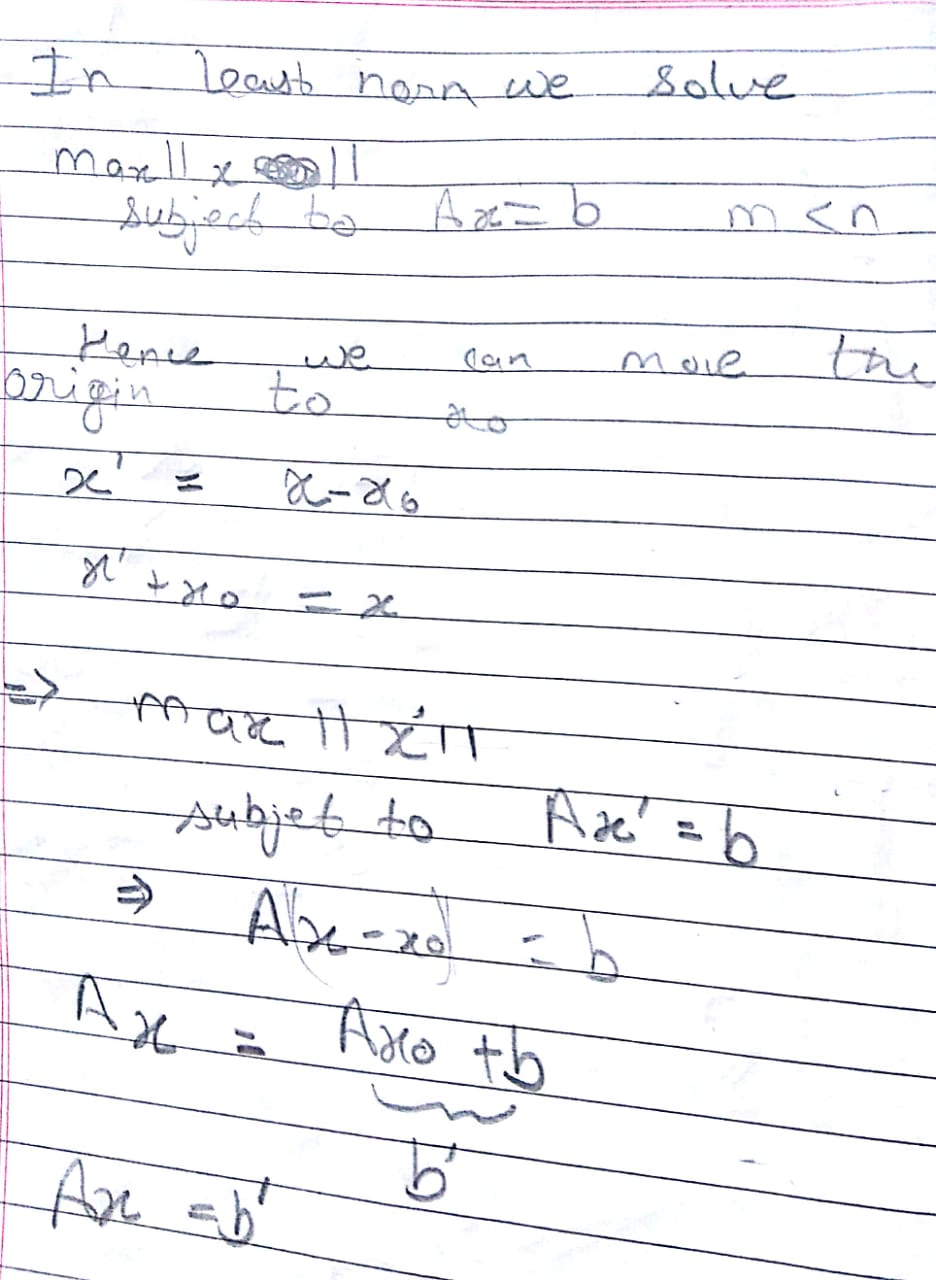 In least norm we solve
Max || x ||
subject to Ax = b m < n
Hence we can move the
origin to x₀
x' = x - x₀
x' + x₀ = x
⇒ max || x' ||
subjet to Ax' = b
⇒ A(x - x₀) = b
Ax = Ax₀ + b
b'
Ax = b'